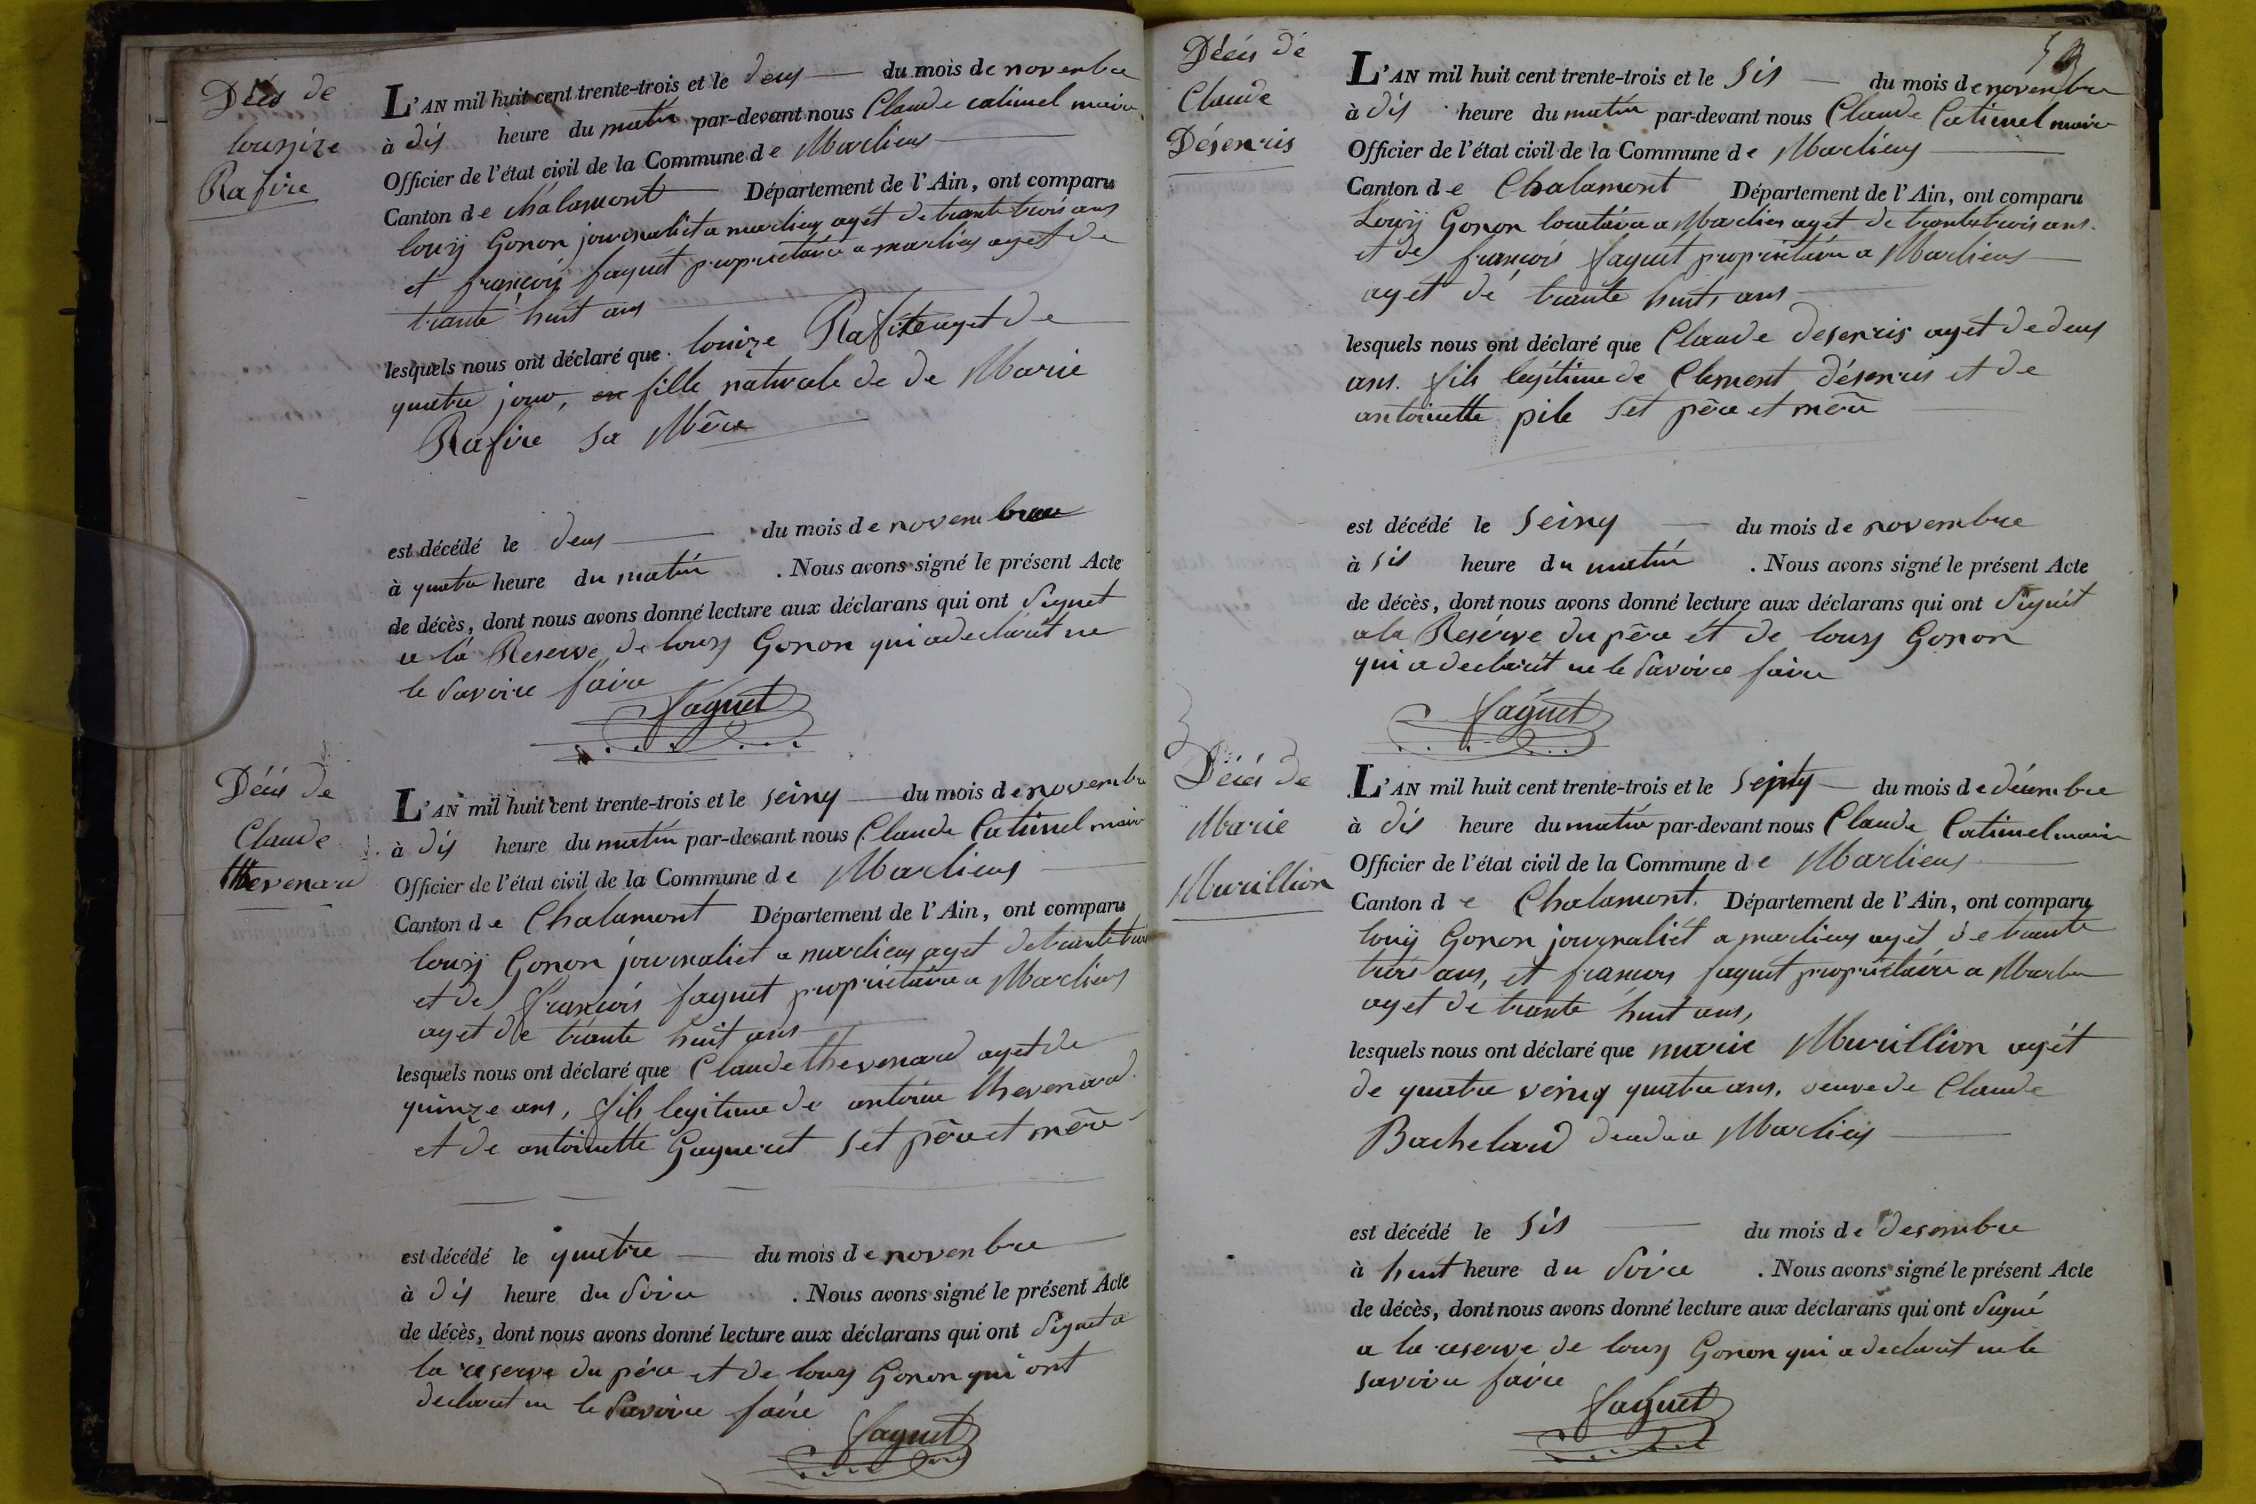 Décés de
lousize
Rafire
L'AN mil huit cent trente-trois et le deus du mois de novembre
à dis heure du matin par-devant nous Claude catimel maire
Officier de l'état civil de la Commune de Marlieus
Canton de chalamont Département de l'Ain, ont comparu
louij Gonon journaliet a marlieus ayét de trante trois ans
et françois faguet propriétaire a marlieus ayet de
trante huit ans
lesquels nous ont déclaré que louize Rafire ayet de
quatre jour, fille naturale de de Marie
Rafire sa Mère
est décédé le deus du mois de novembre
à quatre heure du matin . Nous avons signé le présent Acte
de décès, dont nous avons donné lecture aux déclarans qui ont signet
a la Reserve de louis Gonon qui a declarét ne
le savoire faire
faguet
Décés de
Claude
thevenard
L'AN mil huit cent trente-trois et le seinq du mois de novembre
à dis heure du matin par-devant nous Claude Catimel maire
Officier de l'état civil de la Commune de Marlieus
Canton de Chalamont Département de l'Ain, ont comparu
louij Gonon journaliet a marlieus ayet de trante trois
et de françois faguet propriétaire a Marlieus
ayet de trante huit ans
lesquels nous ont déclaré que Claude thevenard ayet de
quinze ans, fils legitime de antoine thevenard
et de antoinette Gagneret set père et mère
est décédé le quatre du mois de novenbre
à dis heure du soire . Nous avons signé le présent Acte
de décès, dont nous avons donné lecture aux déclarans qui ont signet a
la reserve du père et de louij Gonon qui ont
declaret ne le savoire faire
faguet
Décés dé
Claude
Désenris
L'AN mil huit cent trente-trois et le sis du mois de novembre
à dis heure du matin par-devant nous Claude Catimel maire
Officier de l'état civil de la Commune de Marlieus
Canton de Chalamont Département de l'Ain, ont comparu
Louij Gonon locatéire a Marlieus ayet de trante trois ans.
et de françois faguét propriétaire a Marlieus
ayet dé trante huit ans
lesquels nous ont déclaré que Claude desenris ayet de deus
ans. fils legitime de Clement désenris et de
antoinette pile set père et mère
est décédé le seinq du mois de novembre
à sis heure du matin . Nous avons signé le présent Acte
de décès, dont nous avons donné lecture aux déclarans qui ont signét
a la Resérve du père ét de louis Gonon
qui a declarét ne le savoire faire
faguet
Décés de
Marie
Murillion
L'AN mil huit cent trente-trois et le septs du mois de décembre
à dis heure du matin par-devant nous Claude Catimel maire
Officier de l'état civil de la Commune de Marlieus
Canton de Chalamont. Département de l'Ain, ont comparu
louij Gonon journaliét a marlieus ayét de trante
trois ans, et françois faguet propriétaire a Marlieu
ayet de trante huit ans,
lesquels nous ont déclaré que marie Murillion ayét
de quatre veinq quatre ans, veuve de Claude
Bachelard a Marlieus
est décédé le sis du mois de desembre
à huit heure du soire . Nous avons signé le présent Acte
de décès, dont nous avons donné lecture aux déclarans qui ont signé
a la reserve de louis Gonon qui a declarét ne le
savoire faire
faguet